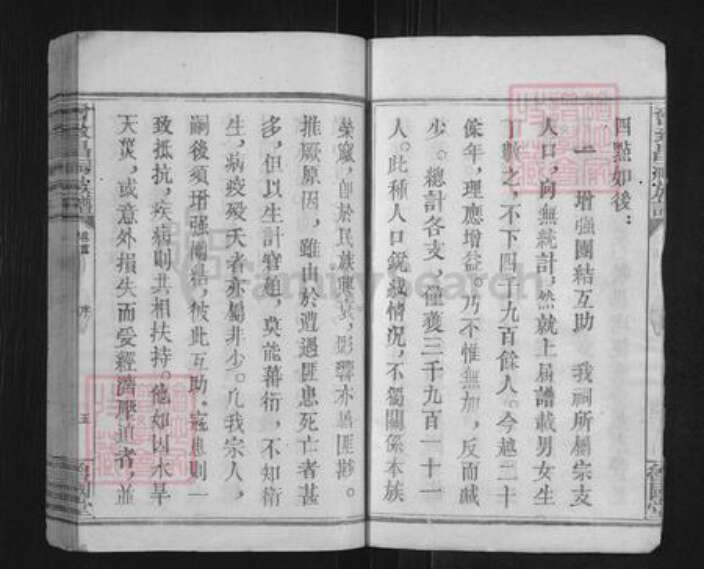 四點如後：
一 增强團結互助 我祠所屬宗支
人口，向無統計，然就上屆譜載男女生
丁數之，不下四千九百餘人。今越二十
餘年，理應增益。乃不惟無加，反而減
少。總計各支，僅獲三千九百一十一
人。此種人口銳減情況，不獨關係本族
榮寂，卽於民族興衰，影響亦屬匪尠。
推厥原因，雖由於遭遇匪患死亡者甚
多，但以生計窘迫，莫能蕃衍，不知衛
生，病疫殁夭者亦屬非少。凡我宗人，
嗣後須增强團結，彼此互助，寇患則一
致抵抗，疾病則共相扶持。他如因水旱
天災，或意外損失而受經濟壓迫者，並
序
五
FamilySearch